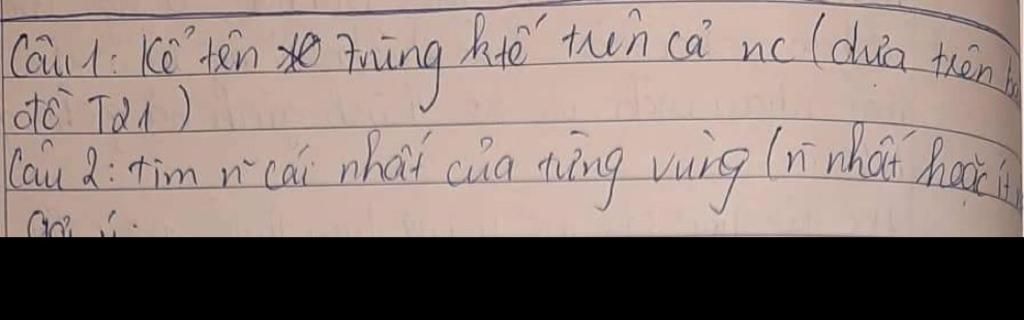 Câu 1: Kể tên từng ktế trên cả nc (dựa trên
đồ T21)
Câu 2: tìm n~ cái nhất của từng vùng (n~ nhất hoặc ít